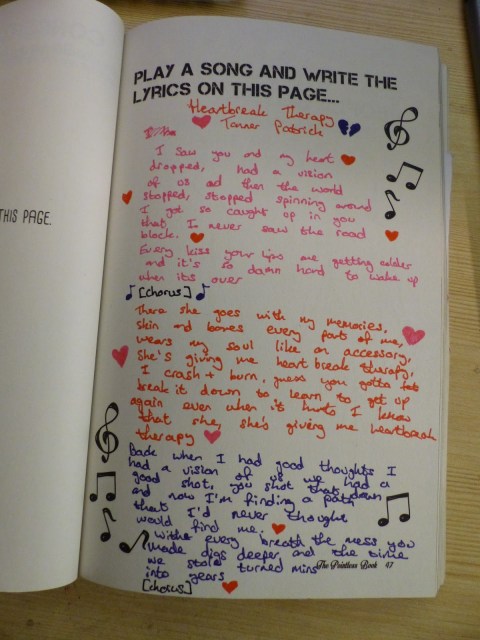 THIS PAGE.
PLAY A SONG AND WRITE THE
LYRICS ON THIS PAGE...
Heartbreak Therapy
Tanner Patrick
I saw you and my heart
dropped, had a vision
of us ad then the world
stopped, stopped spinning around
I got so caught up in you
that I never saw the road
block.
Every kiss your lips are getting colder
and it's so damn hard to wake up
when its over
[Chorus]
There she goes with my memories,
skin and bones every part of me,
wears my soul like an accessory,
She's giving me heart break therapy,
I crash + burn, guess you gotta
break it down to learn to get up
again even when it hurts I know
that she, she's giving me heartbreak
therapy
Back when I had good thoughts I
had a vision of us we had a
good shot, you shot that down
and now I'm finding a path
that I'd never thought
would find me.
With every breath the mess you
made digs deeper and the time
we stole turned mins
into years
[chorus]
The Pointless Book 47